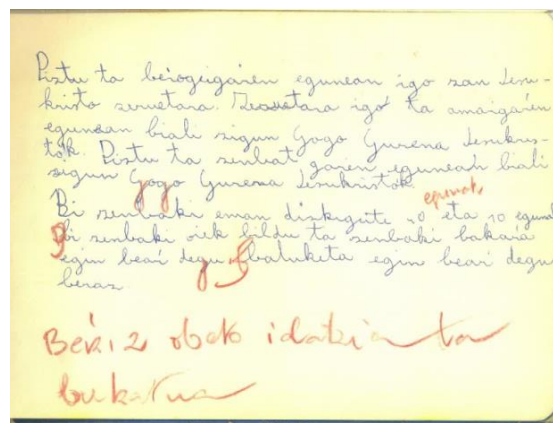 Piztu ta berrogeigaŕen egunean igo zan Jesu-
kristo zeruetara. Zeruetara igo ta amaigaŕen
egunean biali zigun Gogo Gurena Jesukris-
tok. Piztu ta zenbat gaŕen egunean biali
zigun Gogo Gurena Jesukristok.
egunak
Bi zenbaki eman dizkigute 40 eta 10 egunak
Bi zenbaki oiek bildu ta zenbaki bakaŕa
egin beaŕ degu batuketa egin beaŕ degu
beraz
Beŕiz obeto idatzia ta
bukatua